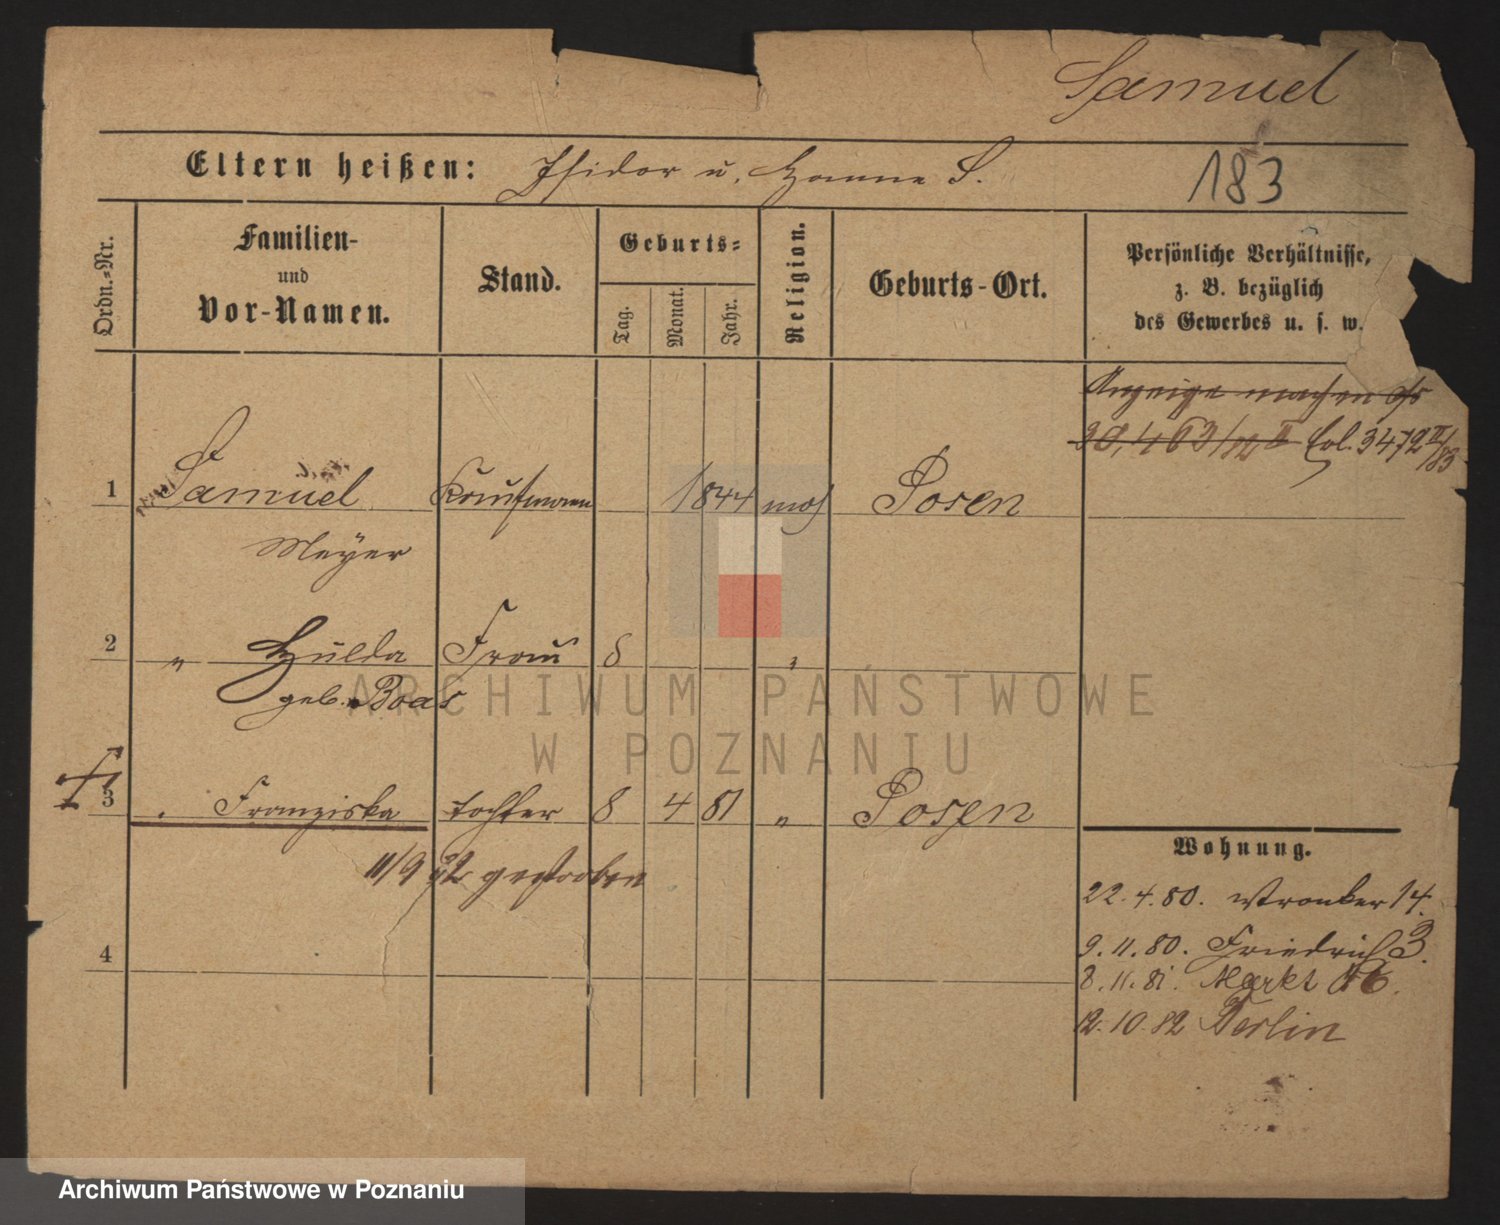 Samuel
Eltern heißen: Isidor u. Hanne S.
183
Ordn.-Nr.
Familien- und Vor-Namen.
Stand.
Geburts-
Tag.
Monat.
Jahr.
Religion.
Geburts-Ort.
Persönliche Verhältnisse, z. B. bezüglich des Gewerbes u. s. w.
Anzeige machen
Col. 3472 II/83
1 Samuel Kaufmann 1844 mos Posen
Meyer
2 " Hulda Frau 8 "
geb. Boas
ARCHIWUM PAŃSTWOWE
W POZNANIU
3 " Franziska Tochter 8 4 81 " Posen
11/9 82 gestorben
4
Wohnung.
22.4.80. Wronker 14.
9.11.80. Friedrich 3.
8.11.81. Markt 46.
12.10.82 Berlin
Archiwum Państwowe w Poznaniu